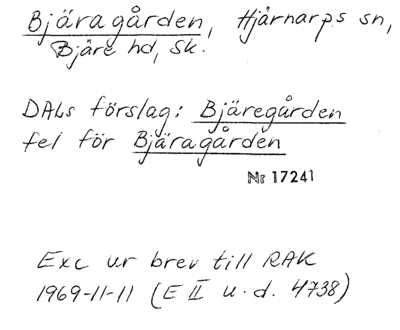 Bjäragården, Hjärnarps sn,
Bjäre hd, Sk.
DALs förslag: Bjäregården
fel för Bjäragården
Nr 17241
Exc ur brev till RAK
1969-11-11 (E II u.d. 4738)